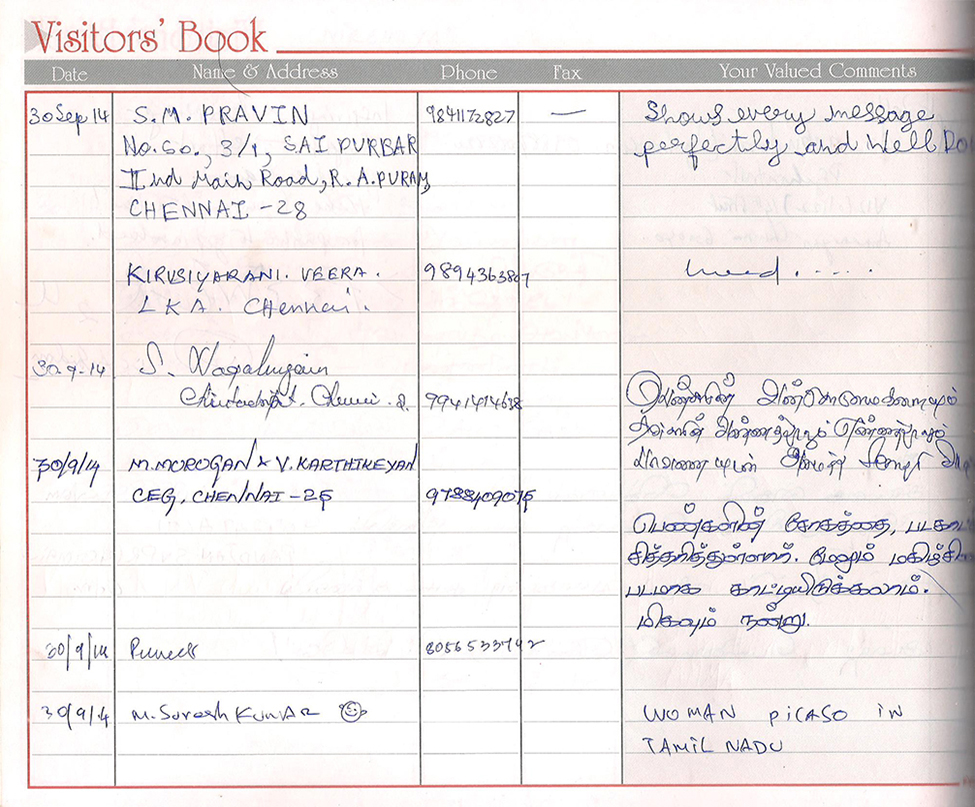 Visitors' Book
Date Name & Address Phone Fax Your Valued Comments
30 Sep 14 S.M. PRAVIN 9841172827 — Shows every message
No. 60., 3/1, SAI DURBAR perfectily and Well Do
IInd Main Road, R.A.PURAM,
CHENNAI -28
KIRUSIYARANI. VEERA. 9894363867
LKA. CHennai.
30.9.14 S.
Chennai. 2. 9941414638
30/9/14 M.MOROGAN & V.KARTHIKEYAN
CEG, CHENNAI -25 9788409075
பெண்களின் சோகத்தை, படகாட்
சித்தரித்துள்ளார். மேலும் மகிழ்சி
படமாக காட்டியிடுக்கலாம்.
மிகவும் நன்று.
30/9/14 8056533792
30/9/14 M.Suresh KUMAR WOMAN PiCASO iN
TAMIL NADU